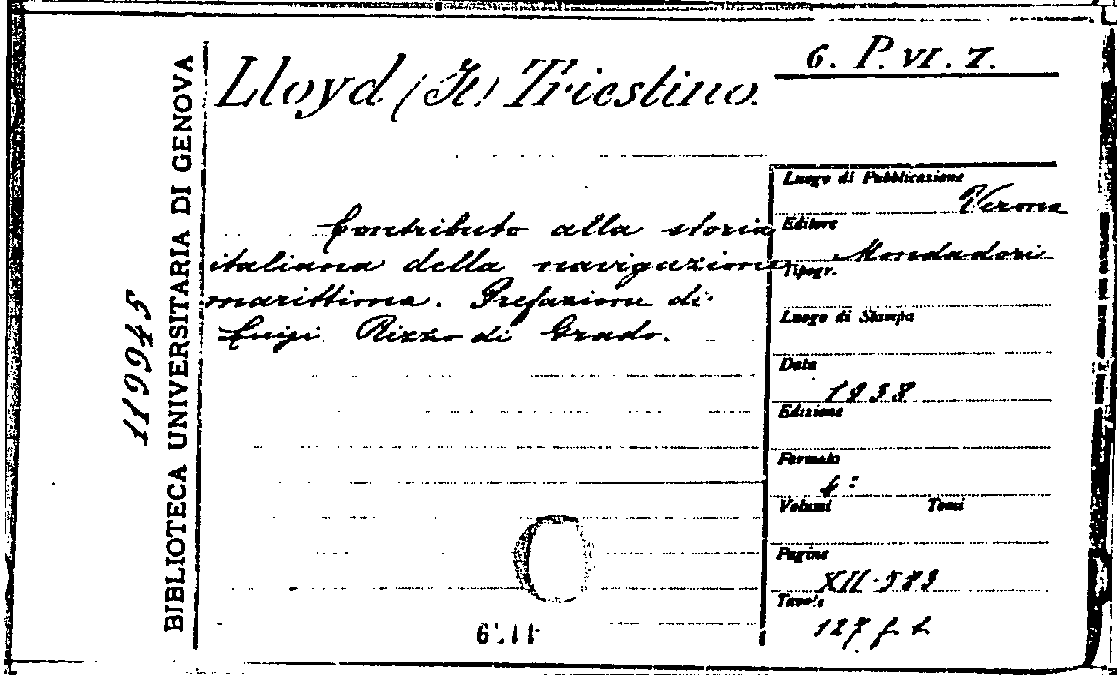 6. P. VI. 7.
Lloyd (Il) Triestino.
BIBLIOTECA UNIVERSITARIA DI GENOVA
119945
Contributo alla storia
italiana della navigazione
marittima. Prefazione di
Luigi Rizzo di Grado.
Luogo di Pubblicazione
Verona
Editore
Mondadori
Tipogr.
Luogo di Stampa
Data
1938
Edizione
Formato
4°
Volumi Tomi
Pagine
XII-583
Tavole
127 f. t.